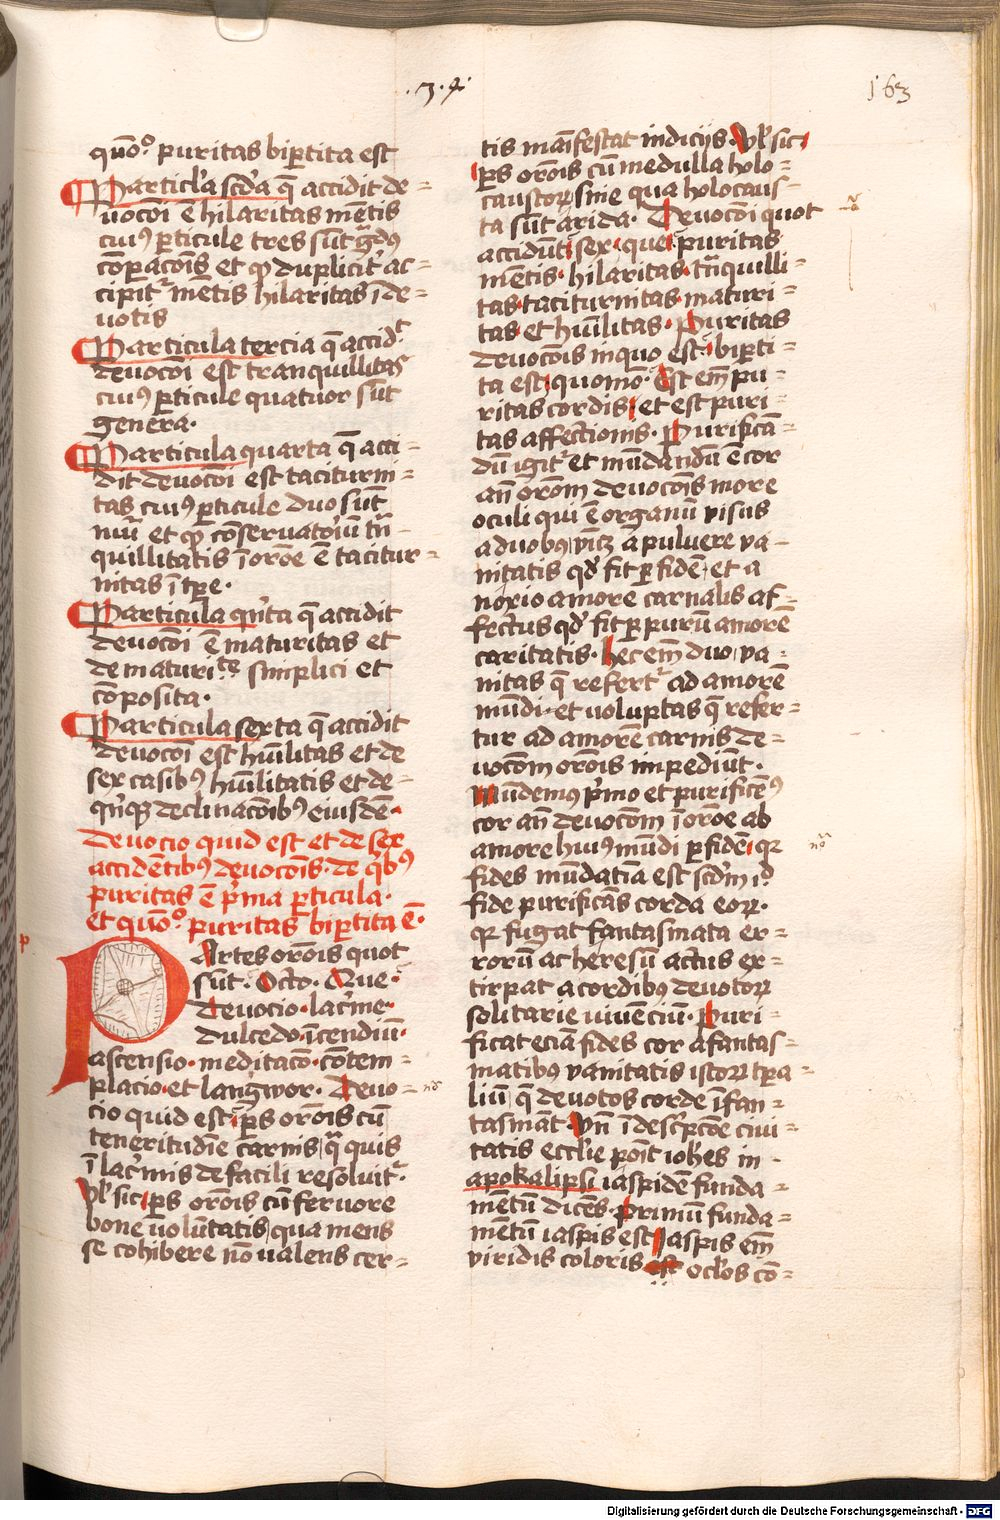 .3.4.
163
quō° puritas bip̄tita est
Particl'a scd'a q̄ accidit de=
uocōi ē hilaritas mētis
cui9 p̄ticule tres sūt gͣd9
cōpacōis et qͦ duplicit' ac=
cipit᷑ mētis hilaritas ī de=
uotis
Particula tercia q̄ accidt
deuocōi est tranquillitas
cui9 p̄ticule quatuor sūt
genera.
Particula quarta q̄ acci
dit deuocōi est taciturni
tas cui9 p̄ticule duo sūt
et qͦ cōseruatoīu tͣn
quillitatis ī orōe ē tacitur=
nitas ī tp̄e.
Particula qn̄ta q̄ accidit
deuocōi ē maturitas et
de maturite simplici et
cōposita.
Particula sexta q̄ accidit
deuocōi est hūilitas et de
sex casib9 hūilitatis et de=
qn̄qꝫ declinacōib9 eiusdē.
Deuocio quid est et de sex
accidētib9 deuocōis. de qͥb9
puritas ē pͥma p̄ticula.
et quō° puritas bip̄tita ē.
p
PArtes orōis quot
sūt. Octo. Que.
Deuocio. lacͥme.
dulcedo. īcendiū.
ascensio. meditacō. cōtem=
placio. et langwor. Deuo=
nō
cio quid est. p̄s orōis cū
teneritudīe carnis qͣ quis
ī lacͥmis de facili resoluit᷑.
Vl' sic p̄s orōis cū feruore
bone uolūtatis qua mens
se cohibere nō ualens cer=
tis maīfestat indicijs. Vl' sic
p̄s orōis cū medulla holo=
caustoꝝ sine qua holocaus=
ta sūt arida. Deuocōi quot
accidūt sex. que. puritas
mētis. hilaritas. tͣnquilli=
tas. taciturnitas. maturi=
tas. et hūilitas. Puritas
deuocōis in quo est. bip̄ti=
ta est. quomō. Est em̄ pu=
ritas cordis. et est puri=
tas affectionis. Purificā=
dū igit᷑ et mūdandū ē cor
an̄ orōm deuocōis more
oculi qui ē organū visus
a duob9 vicꝫ a puluere va=
nitatis qd' fit p̄ fidē. et a
noxio amore carnalis af=
fectus qd' fit p̄ purū amorē
caritatis. hec em̄ duo va=
nitas q̄ refert᷑ ad amorē
mūdi. et uoluptas q̄ refer=
tur ad amorē carnis de=
uocōm orōis impediūt.
Mūdemus pͥmo et purificem9
cor an̄ deuocōm ī orōe ab
amore hui9 mūdi p̄ fidē. qꝛ
nō
fides mūdatīa est scd'm id
fide purificās corda eoꝝ.
qꝛ fugat fantasmata er=
rorū ac heresū actus ex=
tirpat a cordib9 deuotoꝝ
solitarie viuēciū. Puri=
ficat eciā fides cor a fantas=
matibus vanitatis istoꝝ tp̄a=
liū q̄ deuotos corde īfan=
tasmāt. Vn̄ ī descͥpcōe ciui=
tatis eccl'ie poīt ioh'es in
apokalipsi iaspidē funda=
mētū dicēs. Primum funda=
mētū iaspis est. Jaspis em̄
viridis coloris est ocl'os cō=
Digitalisierung gefördert durch die Deutsche Forschungsgemeinschaft - DFG